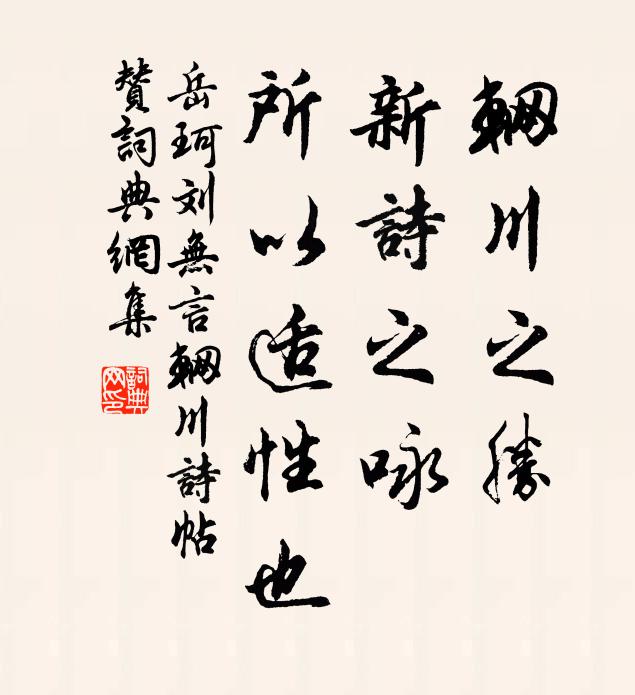 輞川之勝
新詩之咏
所以适性也
岳珂刘無言輞川詩帖
賛詞典網集
詞典网印